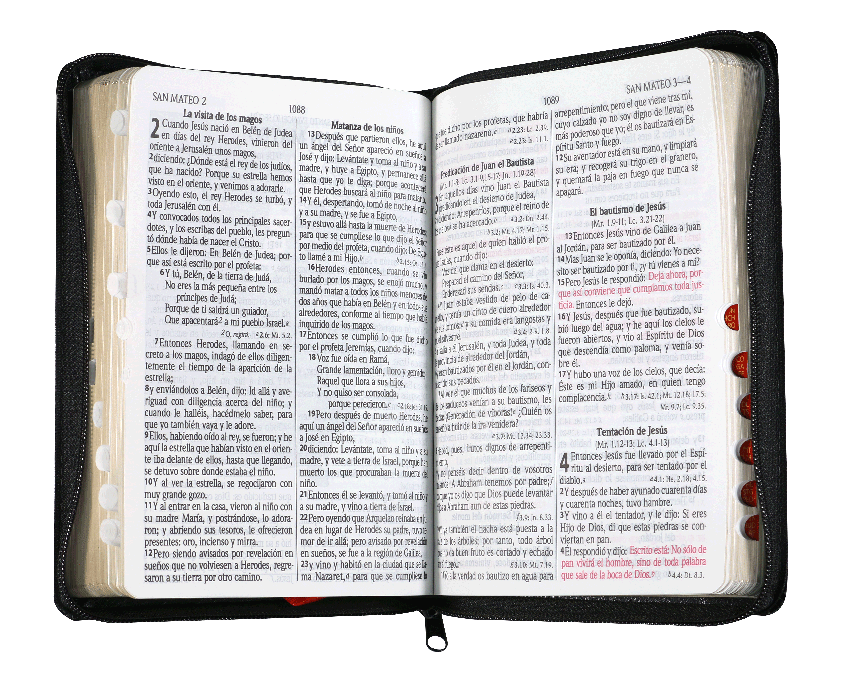 SAN MATEO 2
1088
La visita de los magos
2 Cuando Jesús nació en Belén de Judea
en días del rey Herodes, vinieron del
oriente a Jerusalén unos magos,
2 diciendo: ¿Dónde está el rey de los judíos,
que ha nacido? Porque su estrella hemos
visto en el oriente, y venimos a adorarle.
3 Oyendo esto, el rey Herodes se turbó, y
toda Jerusalén con él.
4 Y convocados todos los principales sacer-
dotes, y los escribas del pueblo, les pregun-
tó dónde había de nacer el Cristo.
5 Ellos le dijeron: En Belén de Judea; por-
que así está escrito por el profeta:
6 Y tú, Belén, de la tierra de Judá,
No eres la más pequeña entre los
príncipes de Judá;
Porque de ti saldrá un guiador,
Que apacentará a mi pueblo Israel.
7 Entonces Herodes, llamando en se-
creto a los magos, indagó de ellos diligen-
temente el tiempo de la aparición de la
estrella;
8 y enviándolos a Belén, dijo: Id allá y ave-
riguad con diligencia acerca del niño; y
cuando le halléis, hacédmelo saber, para
que yo también vaya y le adore.
9 Ellos, habiendo oído al rey, se fueron; y he
aquí la estrella que habían visto en el orien-
te iba delante de ellos, hasta que llegando,
se detuvo sobre donde estaba el niño.
10 Y al ver la estrella, se regocijaron con
muy grande gozo.
11 Y al entrar en la casa, vieron al niño con
su madre María, y postrándose, lo adora-
ron; y abriendo sus tesoros, le ofrecieron
presentes: oro, incienso y mirra.
12 Pero siendo avisados por revelación en
sueños que no volviesen a Herodes, regre-
saron a su tierra por otro camino.
Matanza de los niños
13 Después que partieron ellos, he aquí
un ángel del Señor apareció en sueños a
José y dijo: Levántate y toma al niño y a su
madre, y huye a Egipto, y permanece allá
hasta que yo te diga; porque acontecerá
que Herodes buscará al niño para matarlo.
14 Y él, despertando, tomó de noche al niño
y a su madre, y se fue a Egipto,
15 y estuvo allá hasta la muerte de Herodes;
para que se cumpliese lo que dijo el Señor
por medio del profeta, cuando dijo: De Egip-
to llamé a mi Hijo.
16 Herodes entonces, cuando se vio
burlado por los magos, se enojó mucho, y
mandó matar a todos los niños menores de
dos años que había en Belén y en todos sus
alrededores, conforme al tiempo que había
inquirido de los magos.
17 Entonces se cumplió lo que fue dicho
por el profeta Jeremías, cuando dijo:
18 Voz fue oída en Ramá,
Grande lamentación, lloro y gemido;
Raquel que llora a sus hijos,
Y no quiso ser consolada,
porque perecieron.
19 Pero después de muerto Herodes, he
aquí un ángel del Señor apareció en sueños
a José en Egipto,
20 diciendo: Levántate, toma al niño y a su
madre, y vete a tierra de Israel, porque han
muerto los que procuraban la muerte del
niño.
21 Entonces él se levantó, y tomó al niño y
a su madre, y vino a tierra de Israel.
22 Pero oyendo que Arquelao reinaba en Ju-
dea en lugar de Herodes su padre, tuvo te-
mor de ir allá; pero avisado por revelación
en sueños, se fue a la región de Galilea,
23 y vino y habitó en la ciudad que se lla-
ma Nazaret, para que se cumpliese lo
1089
SAN MATEO 3—4
dicho por los profetas, que habría
de ser llamado nazareno.
Predicación de Juan el Bautista
aquellos días vino Juan el Bautista
predicando en el desierto de Judea,
diciendo: Arrepentíos, porque el reino de
los cielos se ha acercado.
Pues este es aquel de quien habló el pro-
feta Isaías, cuando dijo:
Voz del que clama en el desierto:
Preparad el camino del Señor,
Enderezad sus sendas.
Juan estaba vestido de pelo de ca-
y tenía un cinto de cuero alrededor
de sus lomos; y su comida era langostas y
miel silvestre.
salía a él Jerusalén, y toda Judea, y toda
la provincia de alrededor del Jordán,
y eran bautizados por él en el Jordán, con-
fesando sus pecados.
ver él que muchos de los fariseos y
de los saduceos venían a su bautismo, les
decía: ¡Generación de víboras! ¿Quién os
enseñó a huir de la ira venidera?
Haced, pues, frutos dignos de arrepenti-
no penséis decir dentro de vosotros
mismos: A Abraham tenemos por padre;
porque yo os digo que Dios puede levantar
hijos a Abraham aun de estas piedras.
Y ya también el hacha está puesta a la
raíz de los árboles; por tanto, todo árbol
que no da buen fruto es cortado y echado
en el fuego.
Yo a la verdad os bautizo en agua para
arrepentimiento; pero el que viene tras mí,
cuyo calzado yo no soy digno de llevar, es
más poderoso que yo; él os bautizará en Es-
píritu Santo y fuego.
12 Su aventador está en su mano, y limpiará
su era; y recogerá su trigo en el granero,
y quemará la paja en fuego que nunca se
apagará.
El bautismo de Jesús
(Mr. 1.9-11; Lc. 3.21-22)
13 Entonces Jesús vino de Galilea a Juan
al Jordán, para ser bautizado por él.
14 Mas Juan se le oponía, diciendo: Yo nece-
sito ser bautizado por ti, ¿y tú vienes a mí?
15 Pero Jesús le respondió: Deja ahora, por-
que así conviene que cumplamos toda jus-
ticia. Entonces le dejó.
16 Y Jesús, después que fue bautizado, su-
bió luego del agua; y he aquí los cielos le
fueron abiertos, y vio al Espíritu de Dios
que descendía como paloma, y venía so-
bre él.
17 Y hubo una voz de los cielos, que decía:
Éste es mi Hijo amado, en quien tengo
complacencia.
Tentación de Jesús
(Mr. 1.12-13; Lc. 4.1-13)
4 Entonces Jesús fue llevado por el Espí-
ritu al desierto, para ser tentado por el
diablo.
2 Y después de haber ayunado cuarenta días
y cuarenta noches, tuvo hambre.
3 Y vino a él el tentador, y le dijo: Si eres
Hijo de Dios, di que estas piedras se con-
viertan en pan.
4 Él respondió y dijo: Escrito está: No sólo de
pan vivirá el hombre, sino de toda palabra
que sale de la boca de Dios.
4.4: Dt. 8.3.